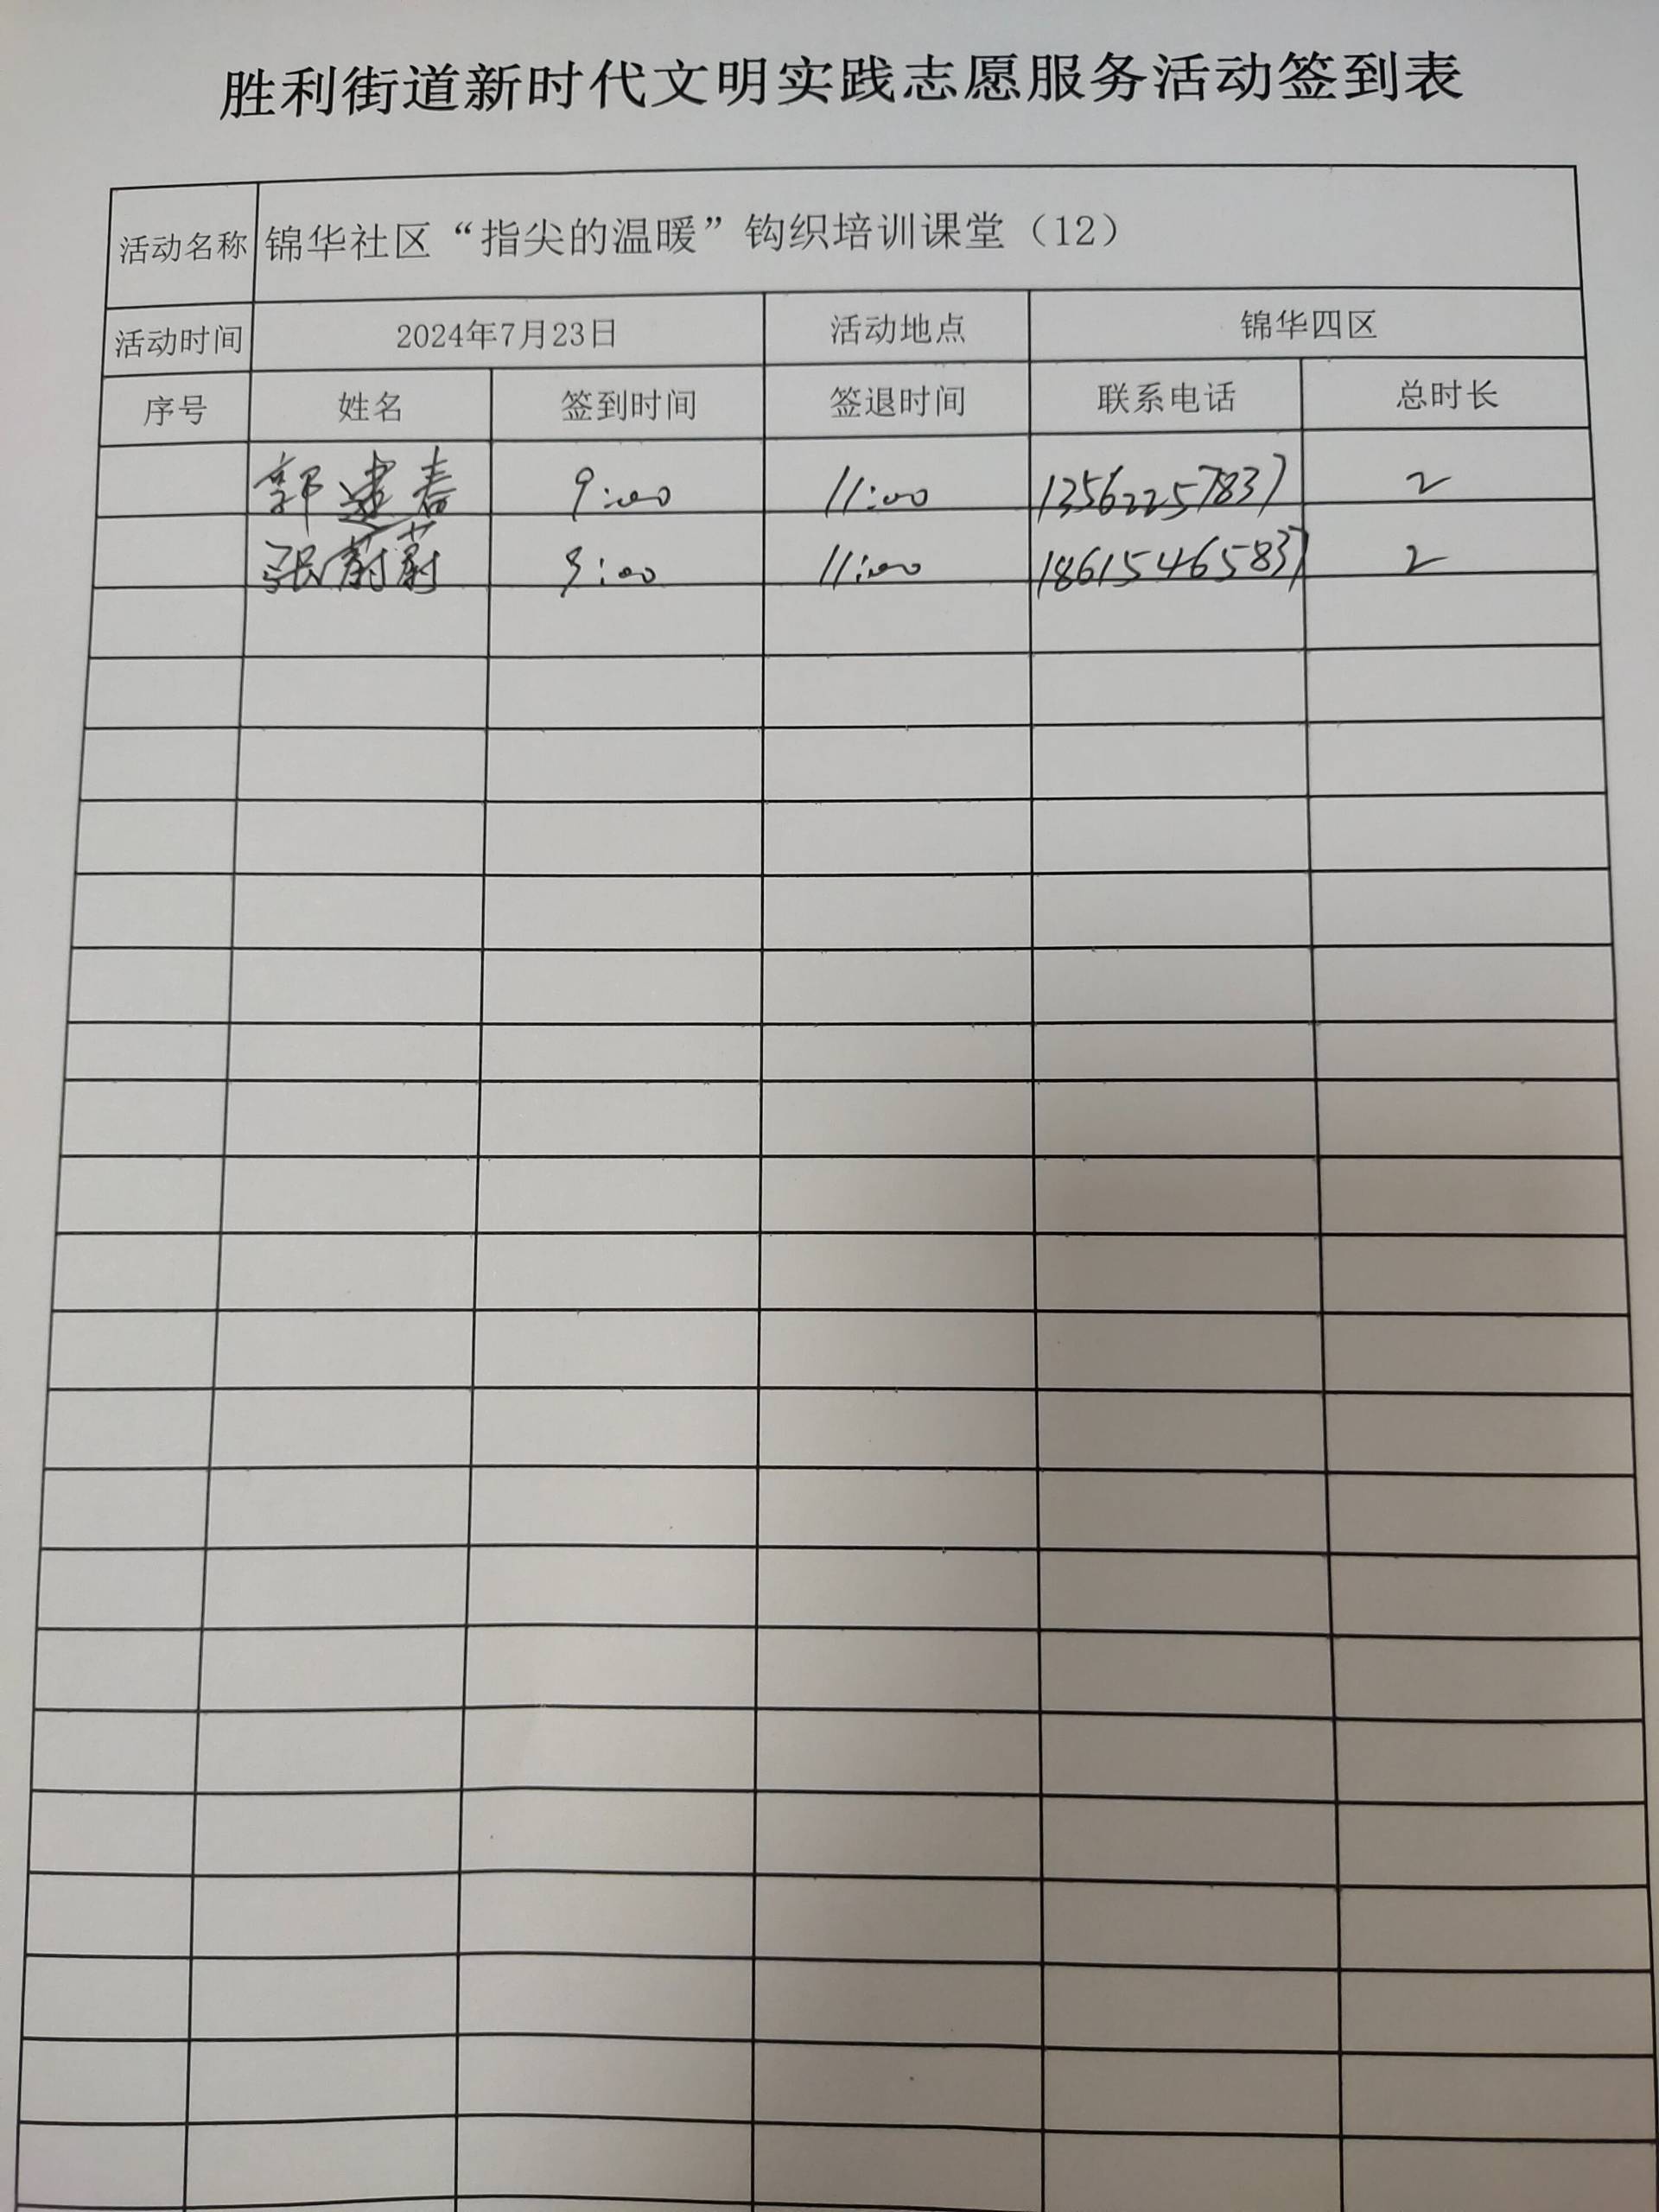 胜利街道新时代文明实践志愿服务活动签到表
活动名称 锦华社区“指尖的温暖”钩织培训课堂（12）
活动时间 2024年7月23日 活动地点 锦华四区
序号 姓名 签到时间 签退时间 联系电话 总时长
郭建春 9:00 11:00 13562257837 2
张蔚蔚 9:00 11:00 18615465837 2